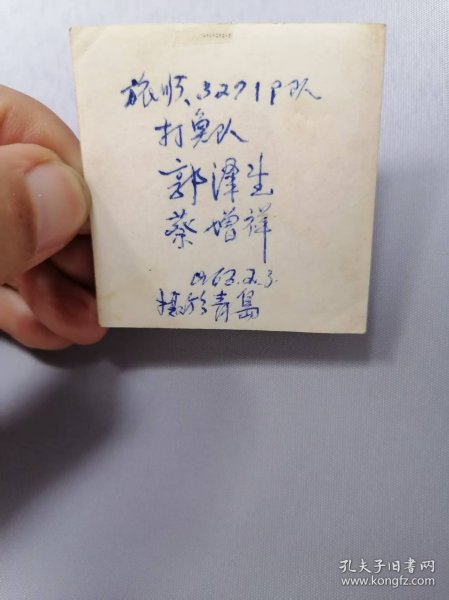 旅顺.3271部队
打鱼队
郭泽生
蔡增祥
1963.2.3.
摄於青岛
孔夫子旧书网
www.kongfz.com